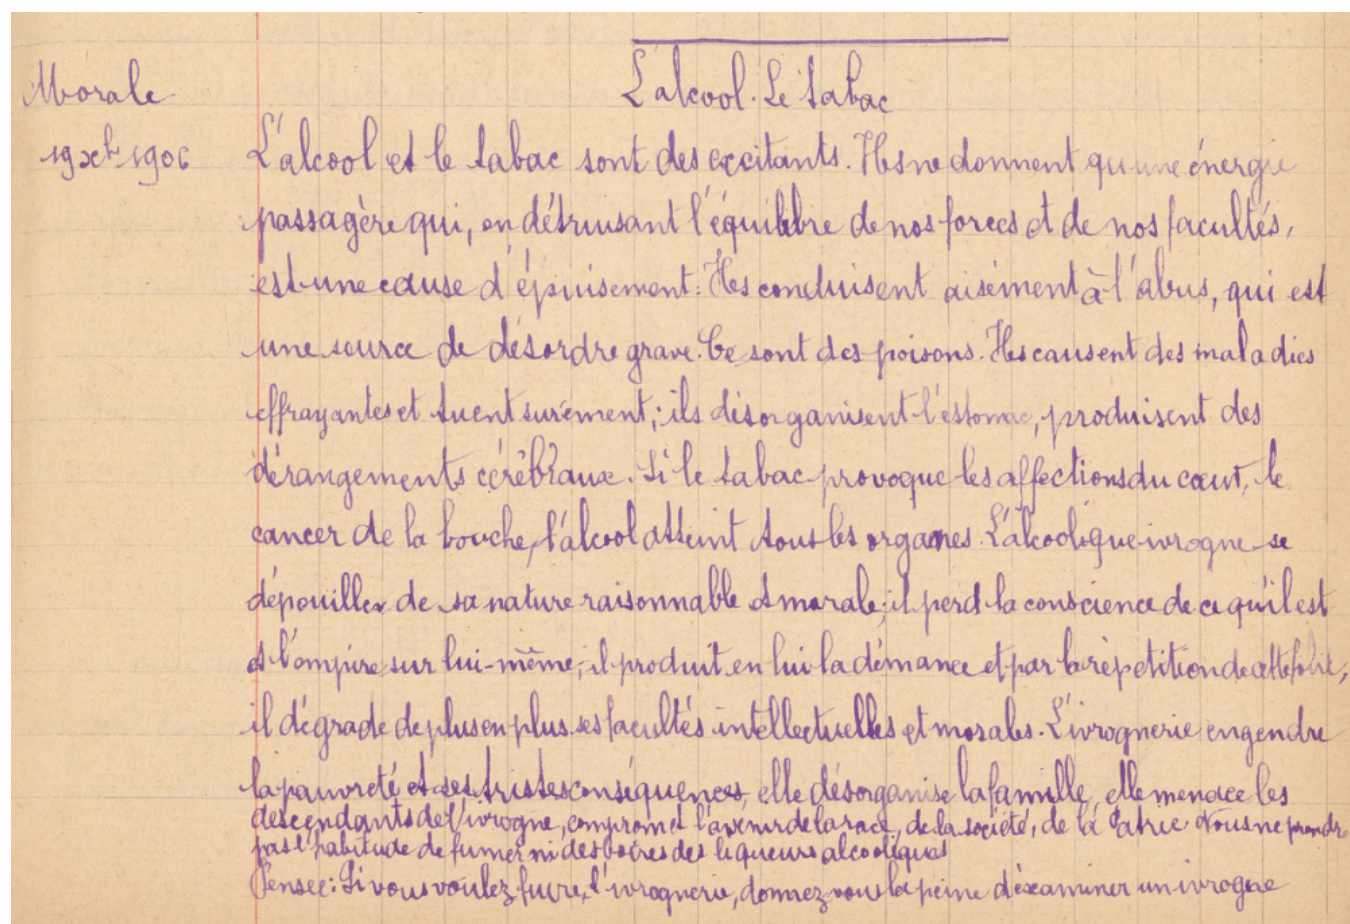 Morale
L'alcool. Le tabac
19 xbre 1906
L'alcool et le tabac sont des excitants. Ils ne donnent qu'une énergie
passagère qui, en détruisant l'équilibre de nos forces et de nos facultés,
est une cause d'épuisement. Ils conduisent aisément à l'abus, qui est
une source de désordre grave. Ce sont des poisons. Ils causent des maladies
effrayantes et tuent surement; ils désorganisent l'estomac, produisent des
dérangements cérébraux. Si le tabac provoque les affections du cœur, le
cancer de la bouche, l'alcool atteint tous les organes. L'alcoolique ivrogne se
dépouille de sa nature raisonnable et morale; il perd la conscience de ce qu'il est
et l'empire sur lui-même; il produit en lui la démance et par la répétition de cette folie,
il dégrade de plus en plus ses facultés intellectuelles et morales. L'ivrognerie engendre
la pauvreté et ses tristes conséquences, elle désorganise la famille, elle menace les
descendants de l'ivrogne, compromet l'avenir de la race, de la société, de la Patrie
pas l'habitude de fumer ni des boires des liqueurs alcooliques
Pensée: Si vous voulez fuire l'ivrognerie, donnez vous la peine d'examiner un ivrogne